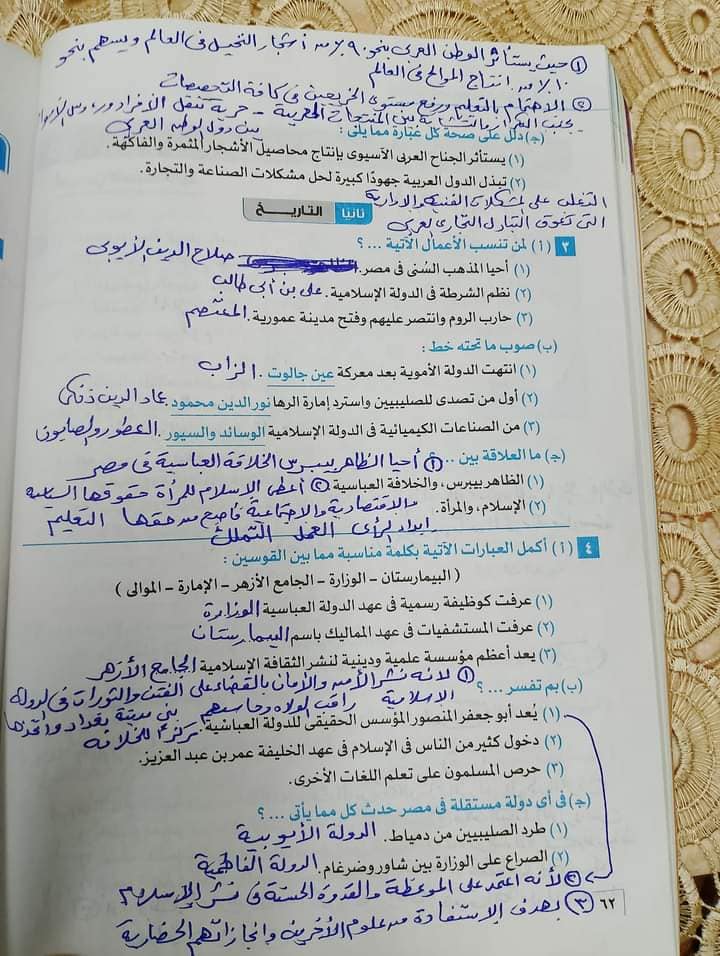 ① حيث يستأثر الوطن العربى بنحو ٩٠٪ من أشجار النخيل فى العالم ويسهم بنحو
١٠٪ من إنتاج الموالح فى العالم
② الاهتمام بالتعليم ورفع مستوى الخريجين فى كافة التخصصات
بين المنتجات العربية - حرية تنقل الأفراد ورءوس الأموال
بين دول الوطن العربى
(ج) دلل على صحة كل عبارة مما يلى:
(١) يستأثر الجناح العربى الآسيوى بإنتاج محاصيل الأشجار المثمرة والفاكهة.
(٢) تبذل الدول العربية جهودًا كبيرة لحل مشكلات الصناعة والتجارة.
التغلب على المشكلات الفنية والإدارية
التى تعوق التبادل التجارى العربى
ثانيًا التاريخ
٣ (أ) لمن تنسب الأعمال الآتية ...؟
(١) أحيا المذهب السُنى فى مصر. صلاح الدين الأيوبى
(٢) نظم الشرطة فى الدولة الإسلامية. على بن أبى طالب
(٣) حارب الروم وانتصر عليهم وفتح مدينة عمورية. المعتصم
(ب) صوب ما تحته خط:
(١) انتهت الدولة الأموية بعد معركة عين جالوت. الزاب
(٢) أول من تصدى للصليبيين واسترد إمارة الرها نور الدين محمود. عماد الدين زنكى
(٣) من الصناعات الكيميائية فى الدولة الإسلامية الوسائد والسيور. العطور والصابون
(ج) ما العلاقة بين ...؟ ① أحيا الظاهر بيبرس الخلافة العباسية فى مصر
(١) الظاهر بيبرس، والخلافة العباسية ② أعطى الإسلام للمرأة حقوقها السياسية
(٢) الإسلام، والمرأة. والاقتصادية والاجتماعية فأصبح من حقها التعليم
إبداء الرأى العمل التملك
٤ (أ) أكمل العبارات الآتية بكلمة مناسبة مما بين القوسين:
(البيمارستان - الوزارة - الجامع الأزهر - الإمارة - الموالى)
(١) عرفت كوظيفة رسمية فى عهد الدولة العباسية الوزارة
(٢) عرفت المستشفيات فى عهد المماليك باسم البيمارستان
(٣) يعد أعظم مؤسسة علمية ودينية لنشر الثقافة الإسلامية الجامع الأزهر
(ب) بم تفسر ...؟ ① لأنه نشر الأمن والأمان بالقضاء على الفتن والثورات فى الدولة
الإسلامية راقب الولاة وحاسبهم بنى مدينة بغداد واتخذها
مركزًا للخلافة
(١) يُعد أبو جعفر المنصور المؤسس الحقيقى للدولة العباسية.
(٢) دخول كثير من الناس فى الإسلام فى عهد الخليفة عمر بن عبد العزيز.
(٣) حرص المسلمون على تعلم اللغات الأخرى.
(ج) فى أى دولة مستقلة فى مصر حدث كل مما يأتى ...؟
(١) طرد الصليبيين من دمياط. الدولة الأيوبية
(٢) الصراع على الوزارة بين شاور وضرغام. الدولة الفاطمية
② لأنه اعتمد على الموعظة والقدوة الحسنة فى نشر الإسلام
③ بهدف الاستفادة من علوم الآخرين وانجازاتهم الحضارية
٦٢